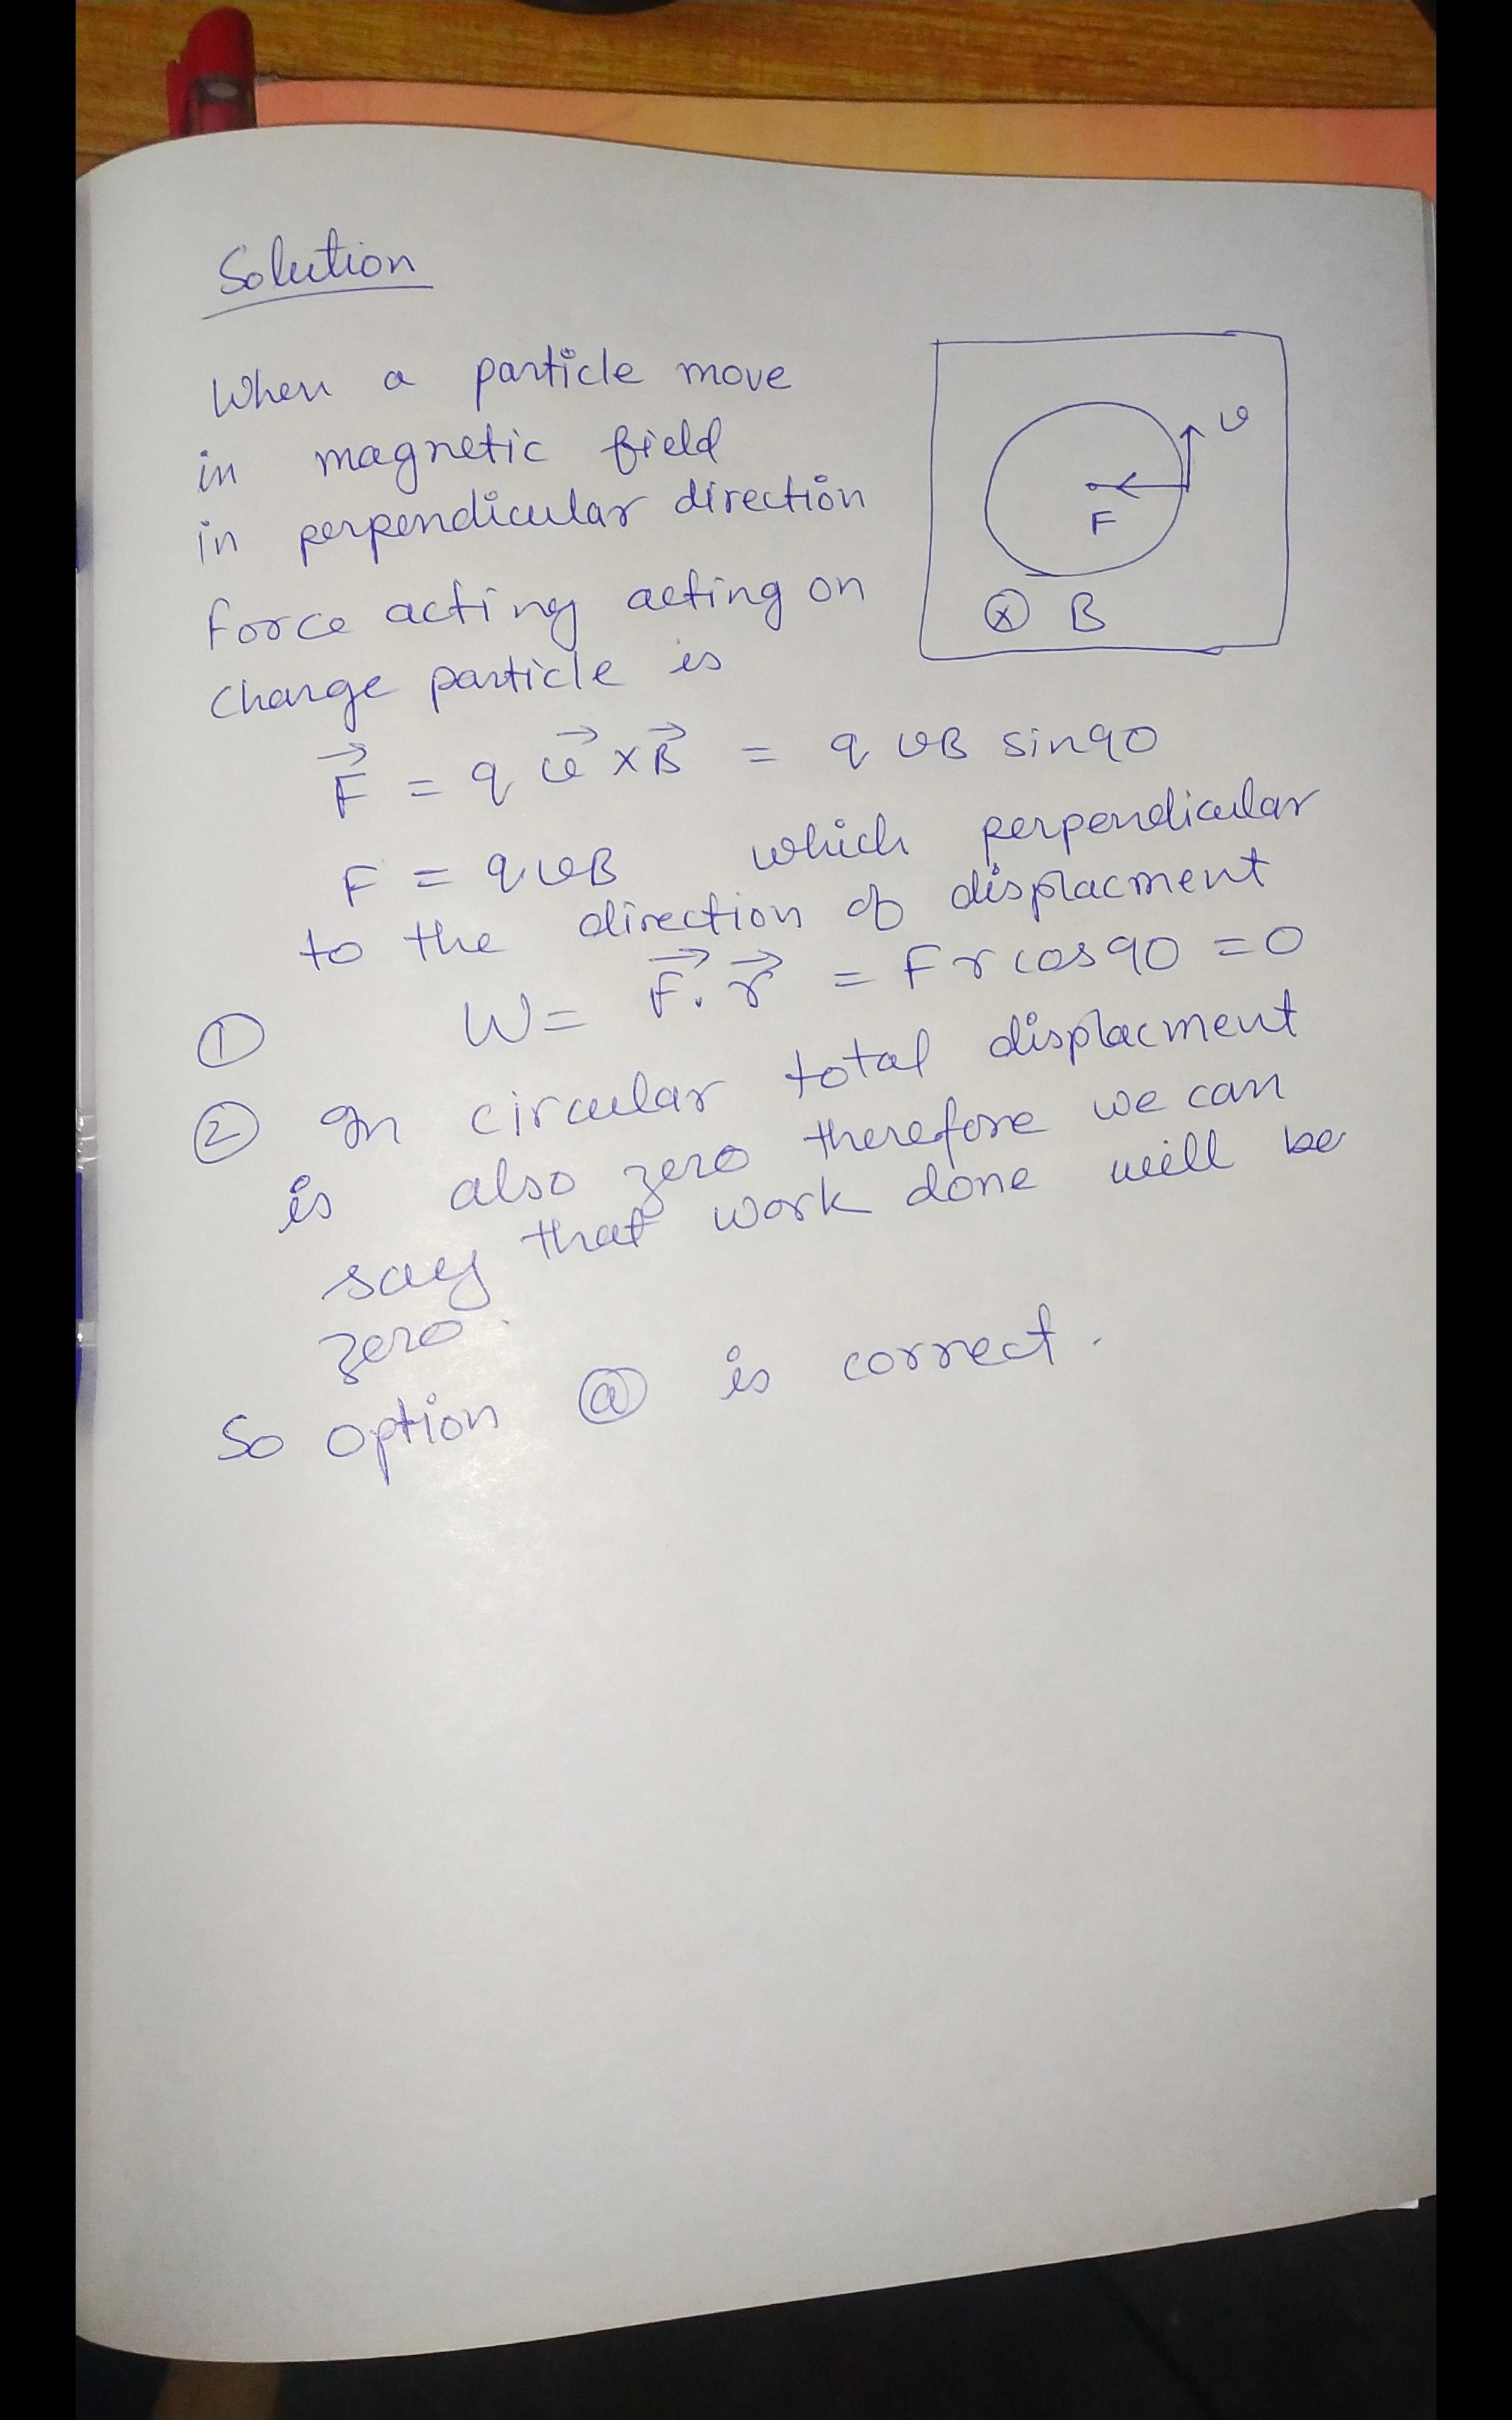 Solution
When a particle move
in magnetic field
in perpendicular direction
force acting acting on
charge particle is
v
F
ⓧ B
F⃗ = q v⃗ × B⃗ = q vB sin90
F = qvB which perpendicular
to the direction of displacment
① W = F⃗. r⃗ = F r cos90 = 0
② In circular total displacment
is also zero therefore we can
say that work done will be
zero.
So option ⓐ is correct.